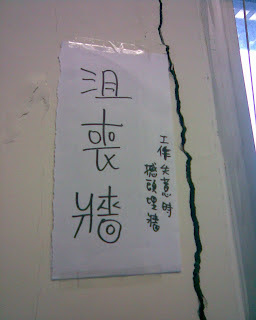 沮喪牆
工作失意時
撼頭埋牆